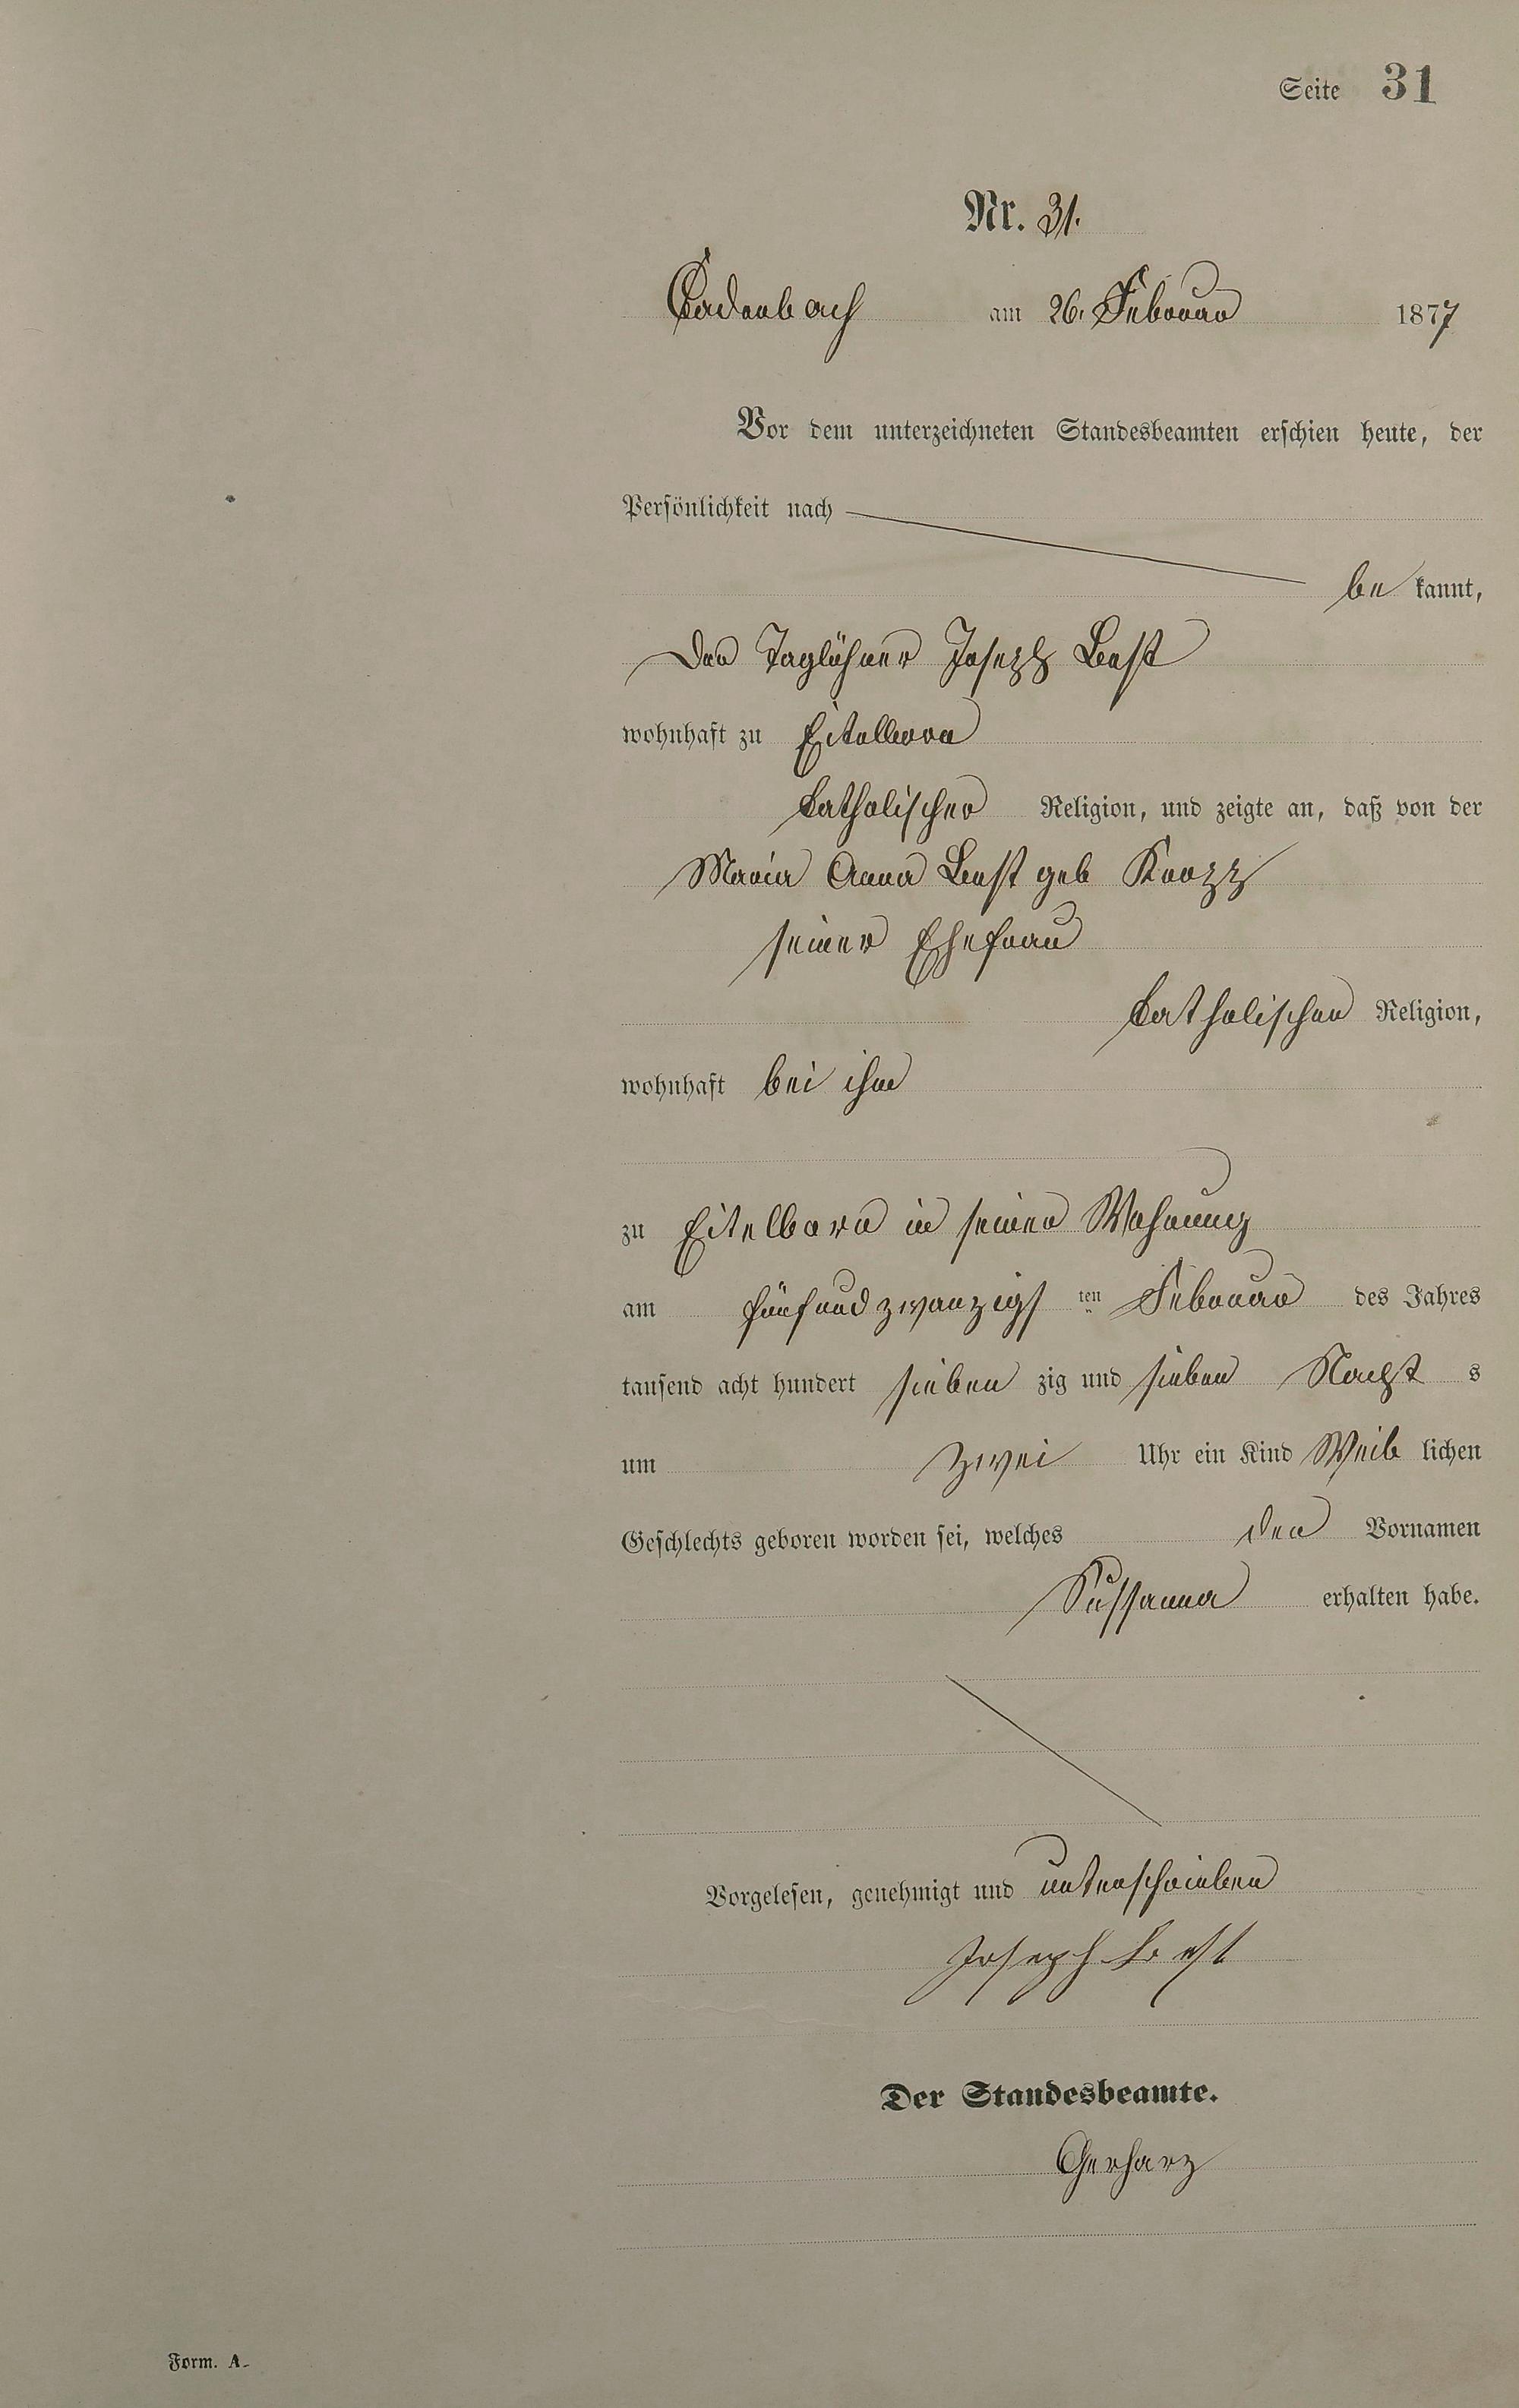 Seite 31
Nr. 31.
Cadenbach am 26. Februar 1877
Vor dem unterzeichneten Standesbeamten erschien heute, der
Persönlichkeit nach
be kannt,
der Taglöhner Joseph Best
wohnhaft zu Eitelborn
katholischer Religion, und zeigte an, daß von der
Maria Anna Best geb Knopp
seiner Ehefrau
katholischer Religion,
wohnhaft bei ihm
zu Eitelborn in seiner Wohnung
am fünfundzwanzigs ten Februar des Jahres
tausend acht hundert sieben zig und sieben Nacht s
um zwei Uhr ein Kind Weib lichen
Geschlechts geboren worden sei, welches den Vornamen
Sussanna erhalten habe.
Vorgelesen, genehmigt und unterschrieben
Joseph Best
Der Standesbeamte.
Gerharz
Form. A.